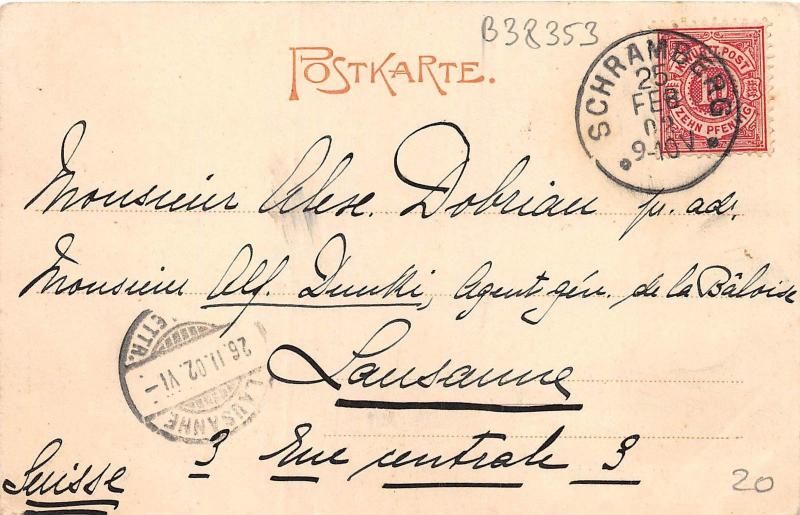 B38353
POSTKARTE.
K. WÜRTT. POST
ZEHN PFENNIG
SCHRAMBERG
25
FEB
02
9-10V
Monsieur Alex. Dobrian p. adr.
Monsieur Alf. Dunki, Agent gén. de la Bâloise
Lausanne
3 Rue centrale 3
Suisse
LAUSANNE
26.II.02.VI
LETTR.
20